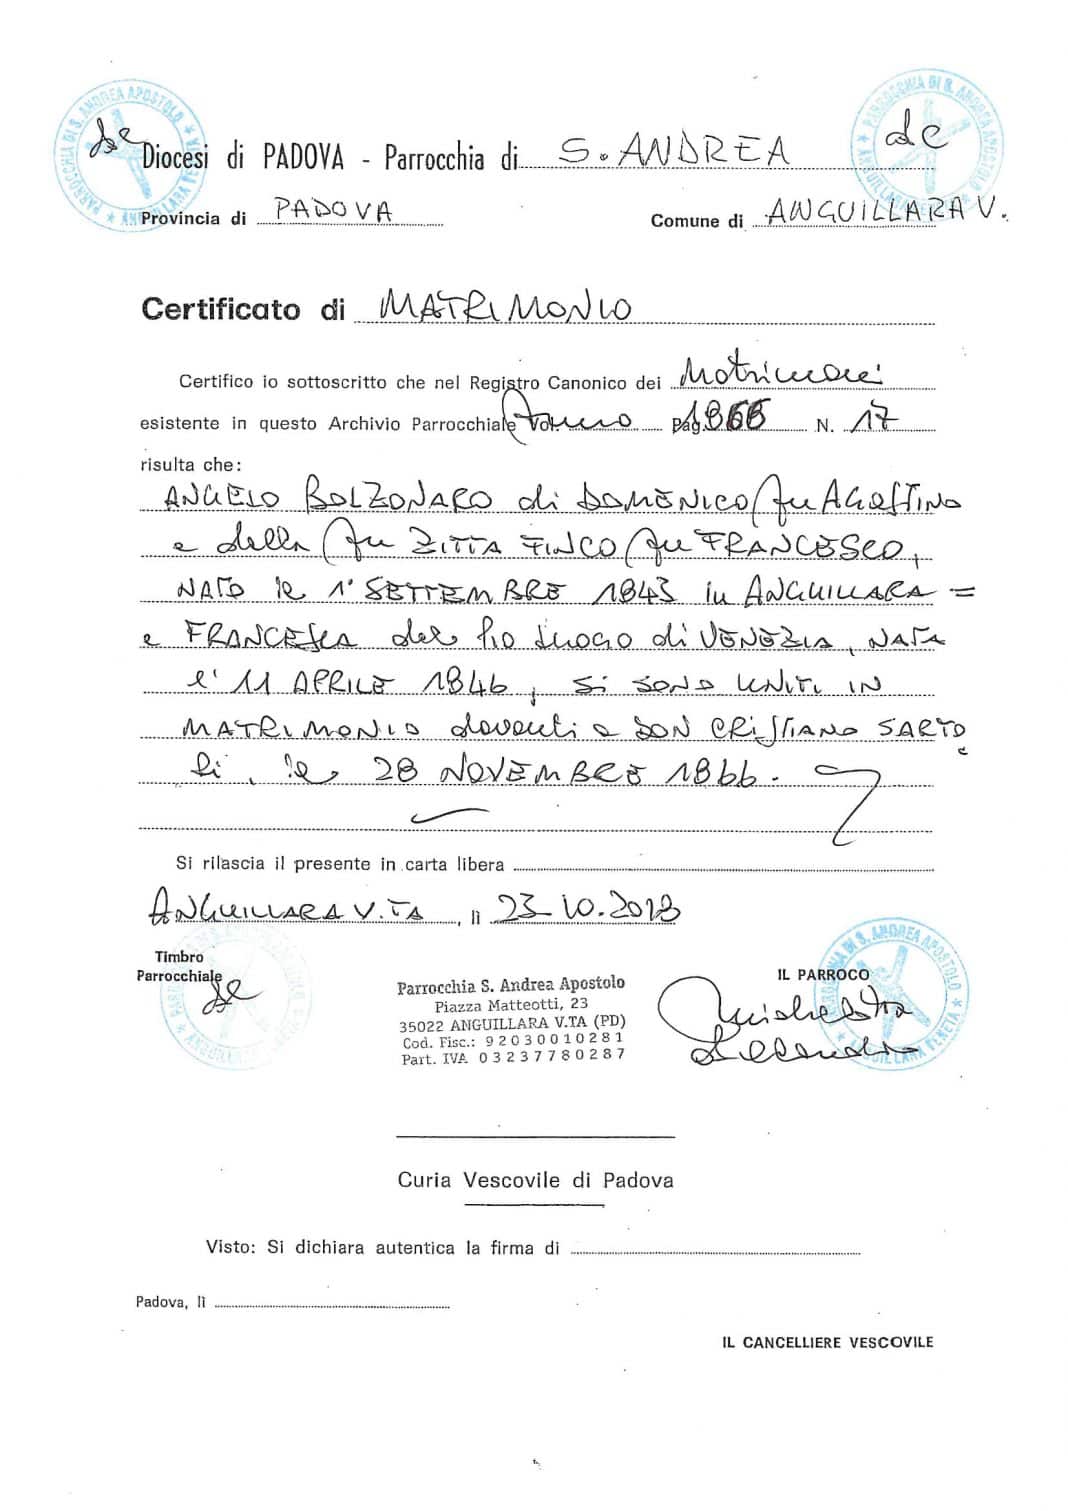 PARROCCHIA DI S. ANDREA APOSTOLO ★ ANGUILLARA VENETA ★
PARROCCHIA DI S. ANDREA APOSTOLO ★ ANGUILLARA VENETA ★
Diocesi di PADOVA - Parrocchia di S. ANDREA
Provincia di PADOVA Comune di ANGUILLARA V.
Certificato di MATRIMONIO
Certifico io sottoscritto che nel Registro Canonico dei Matrimoni
esistente in questo Archivio Parrocchiale Vol. anno Pag. 1866 N. 17
risulta che:
ANGELO BOLZONARO di DOMENICO fu AGOSTINO
e della fu ZITTA FINCO fu FRANCESCO,
NATO le 1° SETTEMBRE 1843 in ANGUILLARA =
e FRANCESCA del Pio Luogo di VENEZIA, NATA
l' 11 APRILE 1846, si SONO UNITI IN
MATRIMONIO davanti a DON CRISTIANO SARTO
lì, le 28 NOVEMBRE 1866.
Si rilascia il presente in carta libera
ANGUILLARA V.TA, lì 23-10.2013
Timbro
Parrocchiale
IL PARROCO
PARROCCHIA DI S. ANDREA APOSTOLO ★ ANGUILLARA VENETA ★
Parrocchia S. Andrea Apostolo
Piazza Matteotti, 23
35022 ANGUILLARA V.TA (PD)
Cod. Fisc.: 92030010281
Part. IVA 03237780287
Curia Vescovile di Padova
Visto: Si dichiara autentica la firma di
Padova, lì
IL CANCELLIERE VESCOVILE